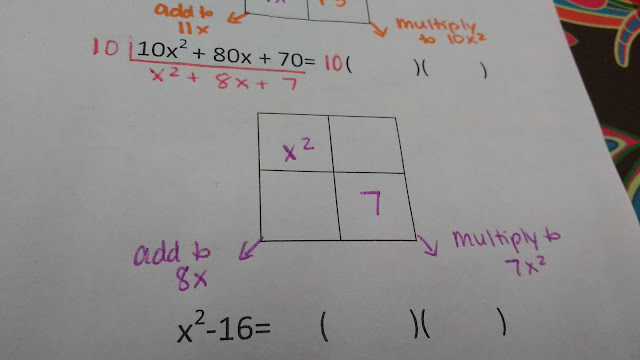 add to
11x
multiply
to 10x²
10 10x² + 80x + 70= 10( )( )
x² + 8x + 7
x²
7
add to
8x
multiply to
7x²
x²-16= ( )( )